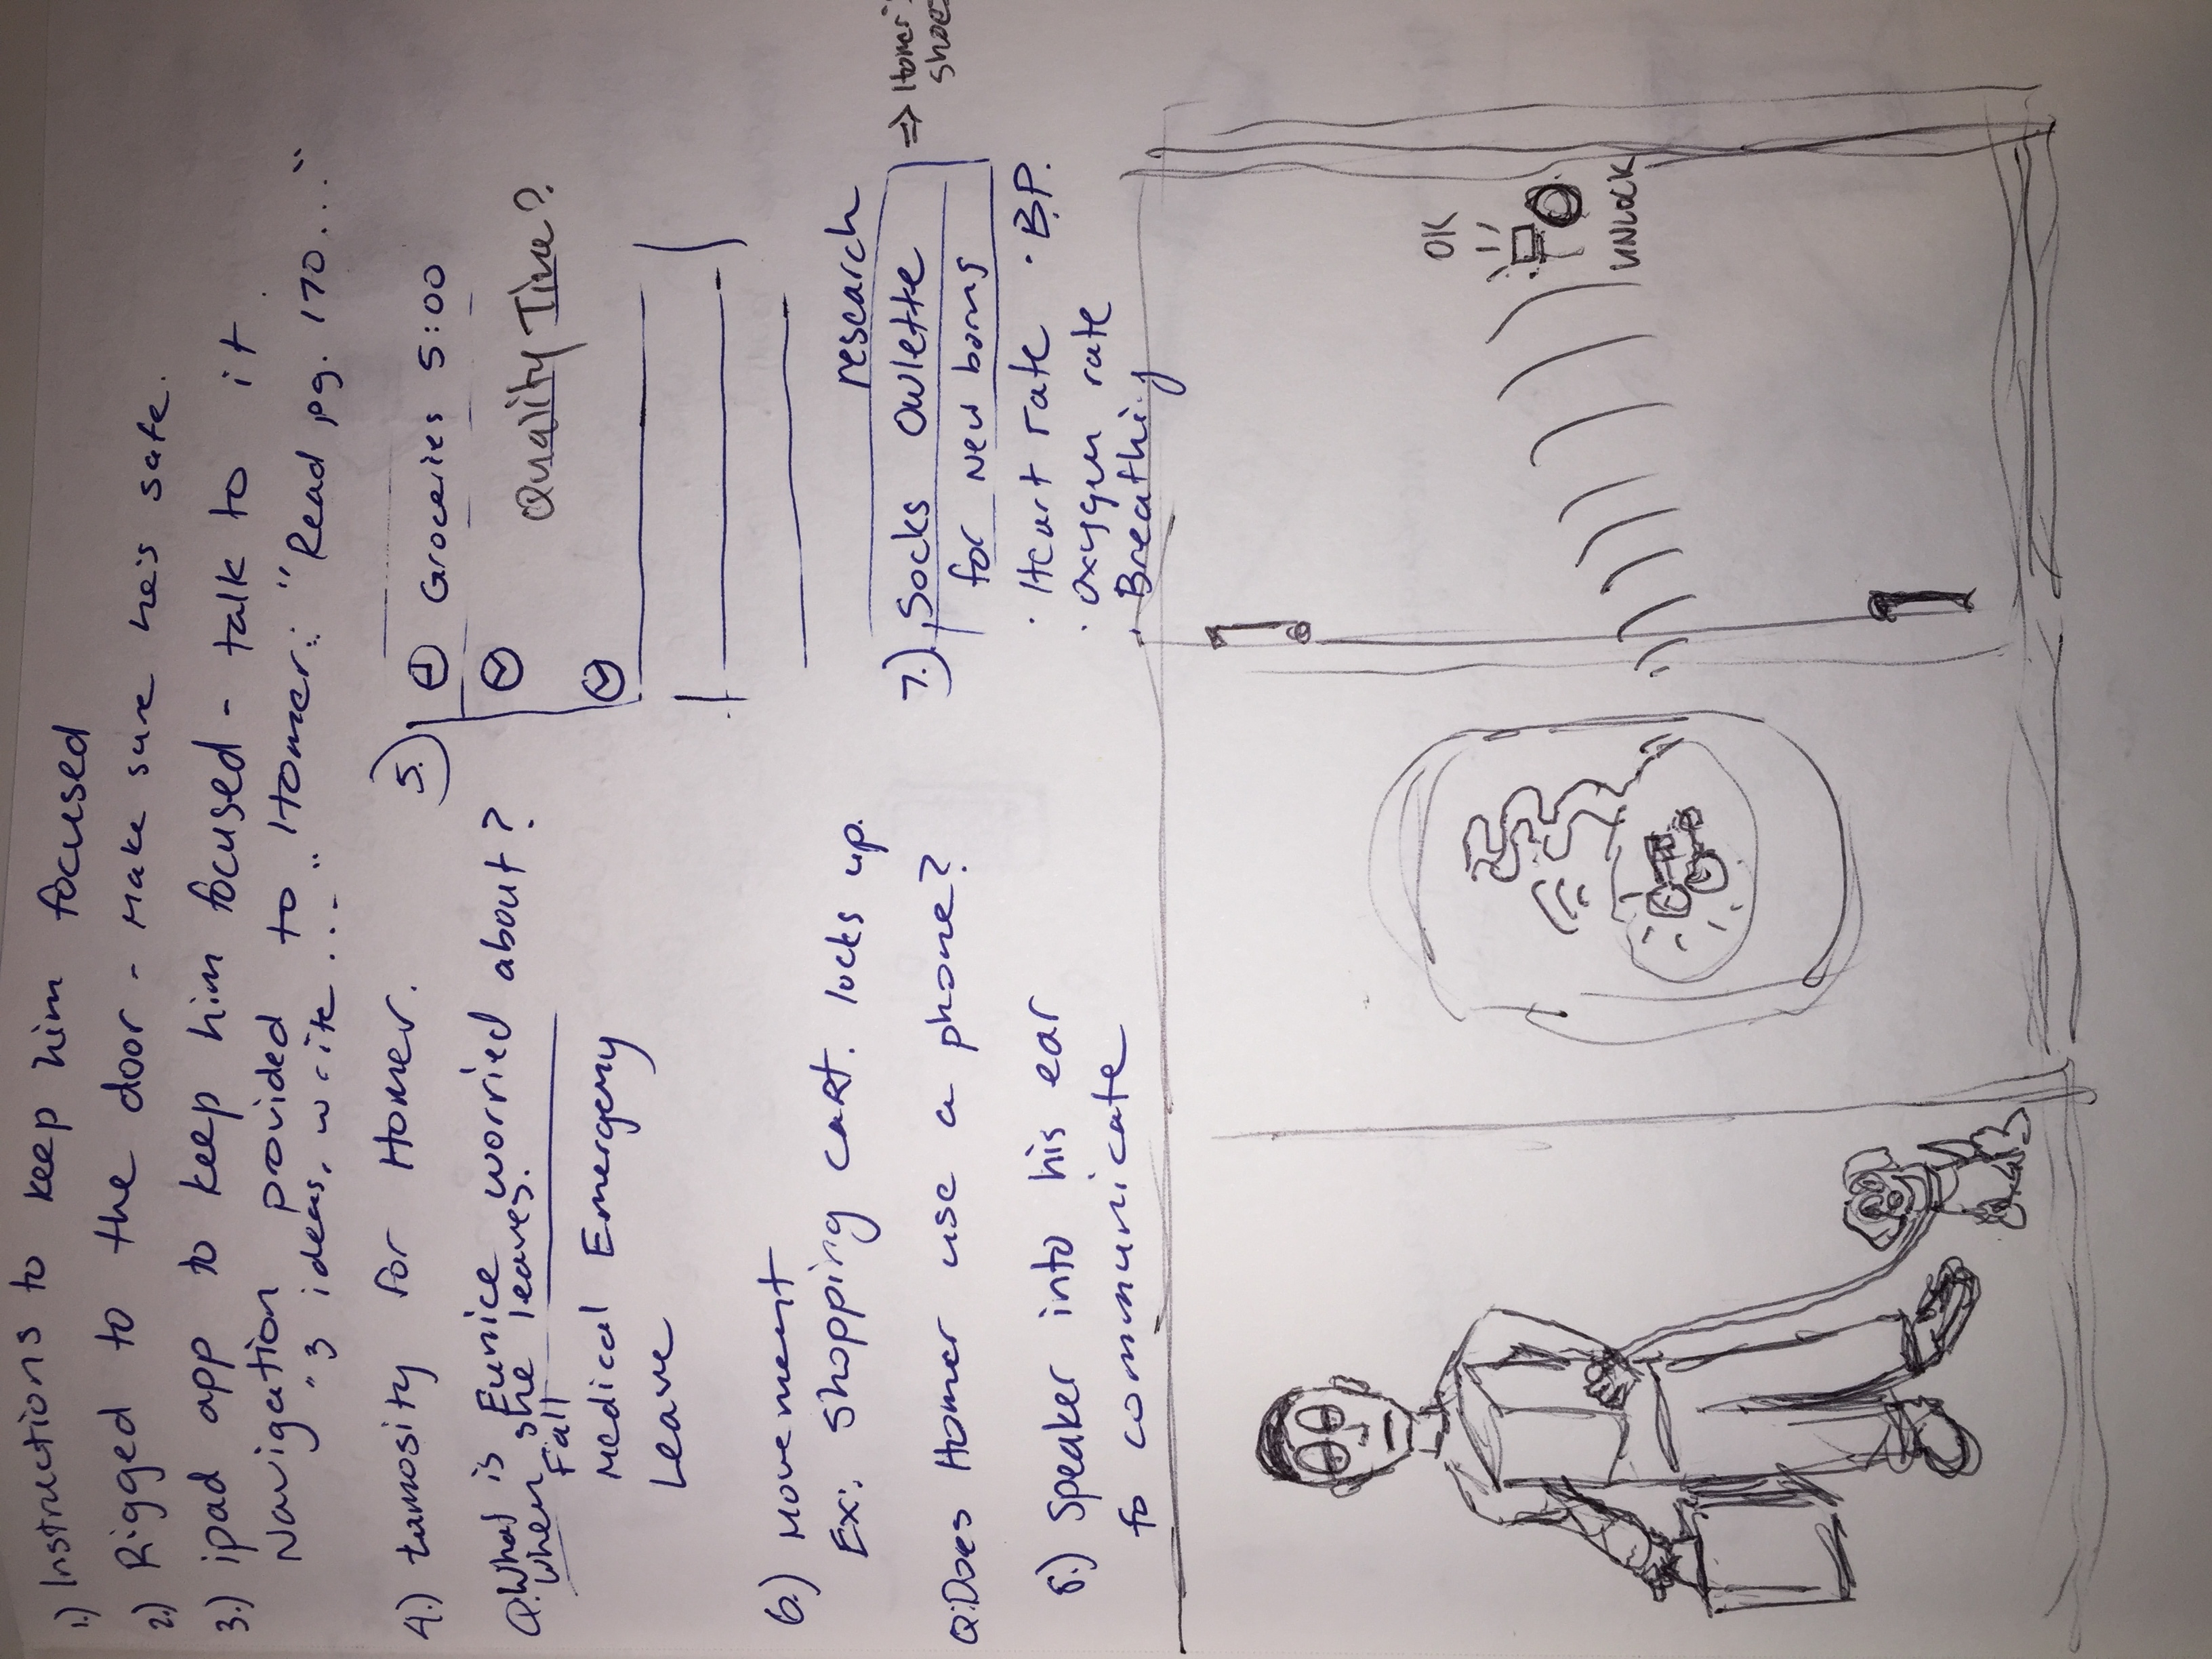 1.) Instructions to keep him focused
2.) Rigged to the door - Make sure he's safe.
3.) ipad app to keep him focused - talk to it.
Navigation provided to Homer: "Read pg. 170..."
"3 ideas, write ...."
4.) Lumosity for Homer.
Q:What is Eunice worried about?
when she leaves.
Fall
Medical Emergency
Leave
5.)
Groceries 5:00
Quality Time?
6.) Movement
Ex: Shopping cart. locks up.
Q:Does Homer use a phone?
research
7.) Socks Owlette
for New borns
⇒ Homer's
shoes
• Heart rate • B.P.
• Oxygen rate
• Breathing
8.) Speaker into his ear
to communicate
OK
UNLOCK